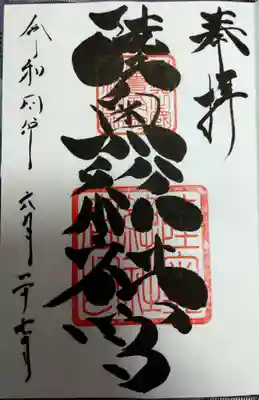 奉拝
陸奥総社宮
令和四年 六月二十七日